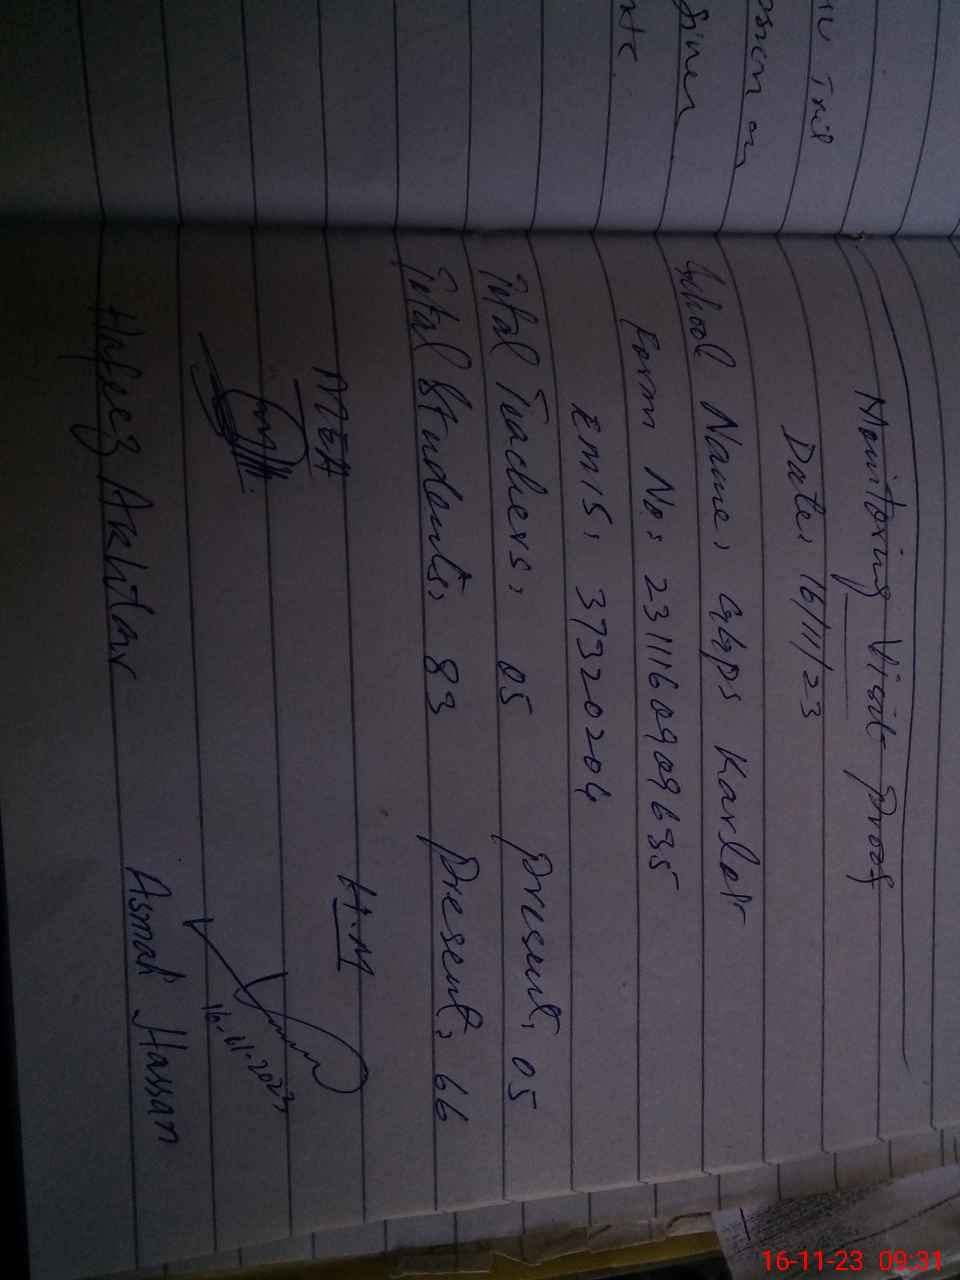 Monitoring Visit Proof
Date: 16/11/23
School Name: GGPS
Form No: 231116090909635
EMIS: 37320204
Total Teachers: 05 Present: 05
Total Students: 83 Present: 66
MEA H.M
16-11-2023
Hafeez Akhtar Asmah Hassan
16-11-23 09:31